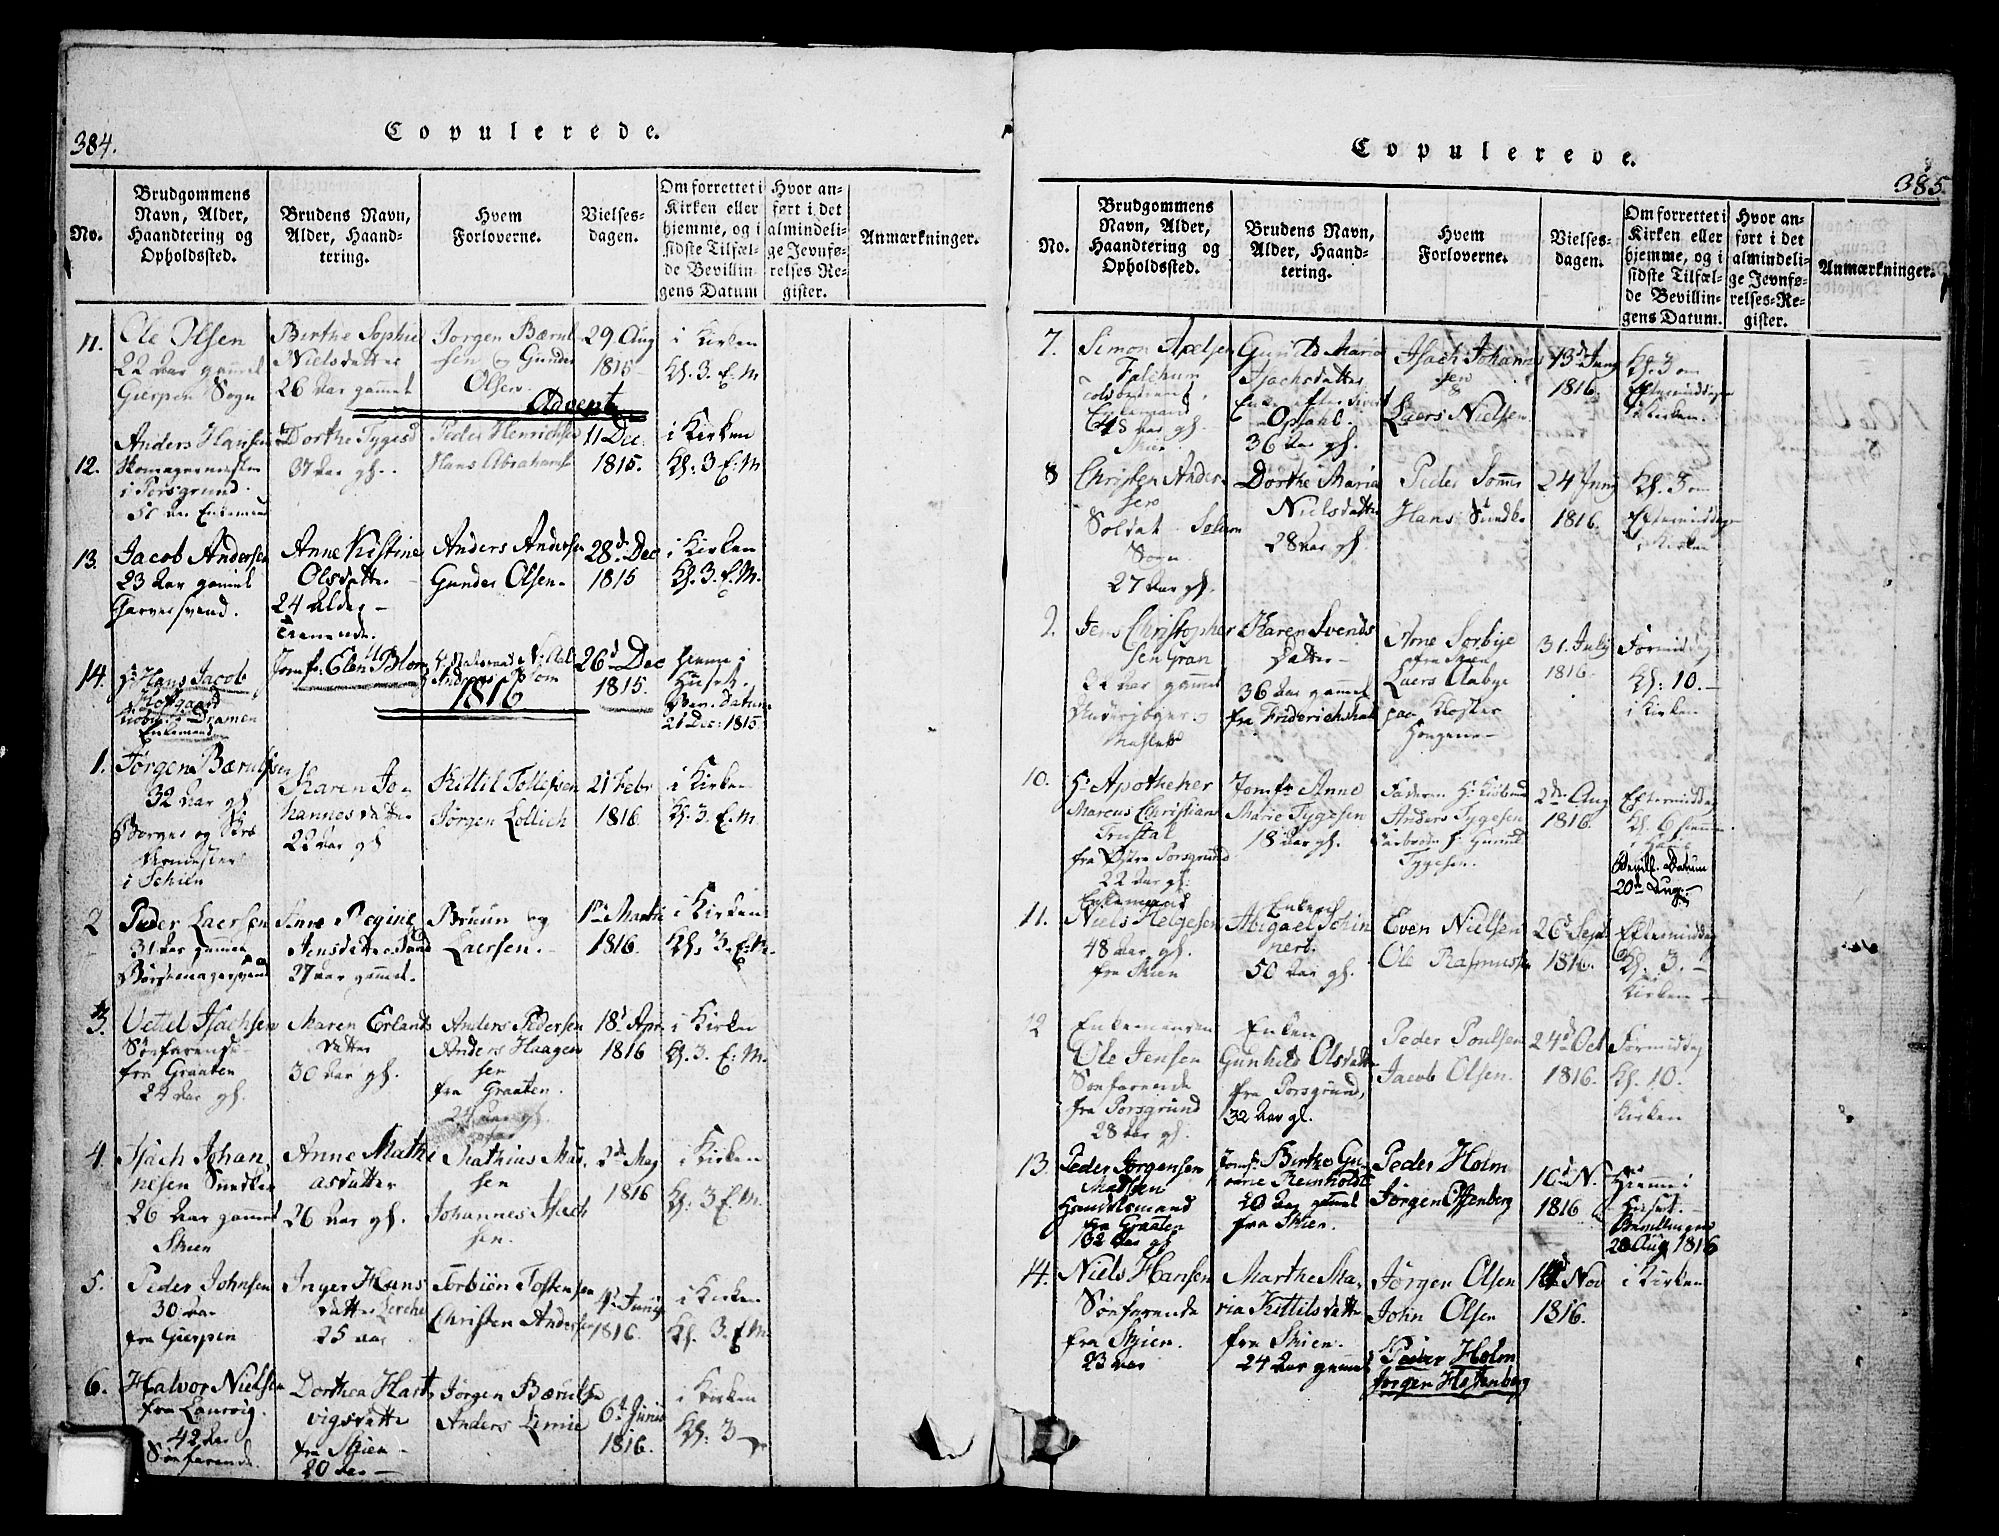 384.
Copulerede.
No.
Brudgommens Navn, Alder, Haandtering og Opholdssted.
Brudens Navn, Alder, Haandtering.
Hvem Forloverne.
Vielsesdagen.
Om forrettet i Kirken eller hjemme, og i sidste Tilfælde Bevillingens Datum
Hvor anført i det almindelige Jevnførelses Register.
Anmærkninger.
11.
Ole Olsen
22 Aar gammel
Gierpen Sogn
Birthe Sophie
Nielsdatter
26 Aar gammel
Jørgen Bærul
sen og Gunder
Olsen.
29 Aug
1815
i Kirken
Kl. 3. E. M
Advent
12.
Anders Hansen
Skomagermester
i Porsgrund.
Dorthe Tygesd
37 Aar gl.
Peder Henrichsen
Hans Abrahams
11 Dec.
1815.
i Kirken
Kl: 3 E: M
13.
Jacob Andersen
23 Aar gamel
Garversvend.
Anne Kistine
Olsdatter
24 Alder
Anders Andersen
Gunder Olsen
28d. Dec
1815
i Kirken
Kl. 3. E. M.
14.
Hr Hans Jacob
Hofgaard
Dramen
Enkemand
Jomfr: Elen Blom
26d Dec
1815.
hiemme i
Huset.
Datum
21 Dec: 1815
1816
1.
Jørgen Bærulfsen
32 Aar gl
Borger og
i Schien
Karen Jo
hannesdatter
22 Aar gl
Kittil Tollefsen
Jørgen Lollich
21 Febr
1816
i Kirken
Kl. 3. E. M.
2
Peder Laersen
31 Aar gammel
Anne Regine
Jensdatter
27 Aar gammel.
Bruun og
Laersen.
1816.
i Kirken
Kl: 3. E: M.
3.
Vetel Isachsen
Søefarende
fra Graaten
24 Aar gl.
Maren Erlands
datter
30 Aar gl.
Anders Pedersen
Anders Haagen
sen
fra Graaten.
18d Apr.
1816
i Kirken
Kl. 3. E: M.
4.
Isach Johan
nesen Sundken
26 Aar gamel
Skien
Anne Mathi
asdatter
26 Aar gl.
Mathias Mad
sen
Johannes Isach
sen.
2d May
1816
i Kirken
Kl: 3 E. M.
5.
Peder Johnsen
30 Aar
fra Gierpen
Inger Hans
datter Lerche
25 Aar
Torbiön Tostensen
Christen Andersen
1816.
i Kirken
Kl. 3. E M.
6.
Halvor Nielsen
fra Laurvig.
42 Aar
Søefarende.
Dorthea Hart
vigsdatter
fra Skien
20 Aar
Jørgen Bærulsen
Anders Limie
6d Junii
1816.
i Kirken
Kl: 3
385
Copulerede.
No.
Brudgommens Navn, Alder, Haandtering og Opholdssted.
Brudens Navn, Alder, Haandtering.
Hvem Forloverne.
Vielsesdagen.
Om forrettet i Kirken eller hjemme, og i sidste Tilfælde Bevillingens Datum.
Hvor anført i det almindelige Jevnførelses-Register.
Anmærkninger.
7.
Simon Axelsen
Falchum
Enkemand
48 Aar gl.
Skien
Gunild Maria
Isachsdatter
Enke efter
Opsahl.
36 Aar gl.
Isach Johannes
sen
&
Laers Nielsen
13d Juny
1816
Kl. 3 om
Eftermiddagen
i Kirken.
8
Christen Ander
sen
Soldat Solum
Sogn
27 Aar gl.
Dorthe Maria
Nielsdatter
28 Aar gl.
Peder
Hans Sundbe
24 Juny
1816.
Kl. 3 om
Eftermiddage
i Kirken
9.
Jens Christopher
sen Gran
22 Aar gammel
Karen Svends
datter
36 Aar gammel
fra Friderichshal
Arne Sorbye
fra Skien
Laers Aabye
paa Kloster
31. July
1816
Formiddag
Kl: 10.
i Kirken
10.
Hr Apotheker
Marcus Christian
fra Østre Porsgrund
22 Aar gl.
Jomfr Anne
Marie Tygesen
18 Aar gl.
Faderen Hr
Anders Tygesen
Tygesen.
2de Aug
1816.
Eftermiddag
Kl. 6 hiemme
i Huus
Bevill. Datum
20d Aug.
11.
Enkemand
Niels Helgesen
48 Aar gl.
fra Skien
Enken
Abigael Schin
nert.
50 Aar gl.
Even Nielsen
Ole Rasmussen
26d Sept
1816.
Eftermiddag
Kl. 3.
Kirken
12
Enkemanden
Ole Jensen
Søefarende
fra Porsgrund
28 Aar gl.
Enken
Gunhild Olsdatter
fra Porsgrund,
32 Aar gl.
Peder Poulsen
Jacob Olsen.
24d Oct
1816.
Formiddag
Kl. 10.
Kirken
13.
Peder Jørgensen
Madsen
Handelsmand
fra Graaten
32 Aar gl
Jomfr: Birthe Gu
Reinholdt
20 Aar gammel
fra Skien.
Peder Holm
Jørgen
1816
Hiemme i
Huset.
Bevillingens
20 Aug 1816
14.
Niels Hansen
Søefarende
fra Skien
23 Aar
Marthe Ma
ria Kittilsdatter
fra Skien.
24 Aar gammel
Jørgen Olsen
John Olsen
Peder Holm
Jørgen
Nov
1816.
i Kirken